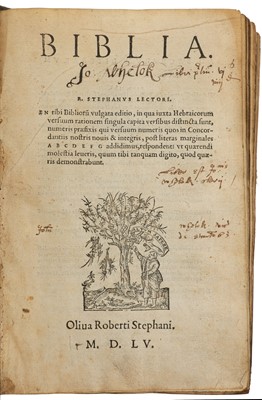 BIBLIA.
Jo. Whelok
R. STEPHANVS LECTORI.
EN tibi Bibliorũ vulgata editio, in qua iuxta Hebraicorum
versuum rationem singula capita versibus distincta sunt,
numeris præfixis qui versuum numeris quos in Concor-
dantiis nostris nouis & integris, post literas marginales
A B C D E F G addidimus, respondent: vt quærendi
molestia leueris, quum tibi tanquam digito, quod quæ-
ris demonstrabunt.
Oliua Roberti Stephani.
M. D. LV.